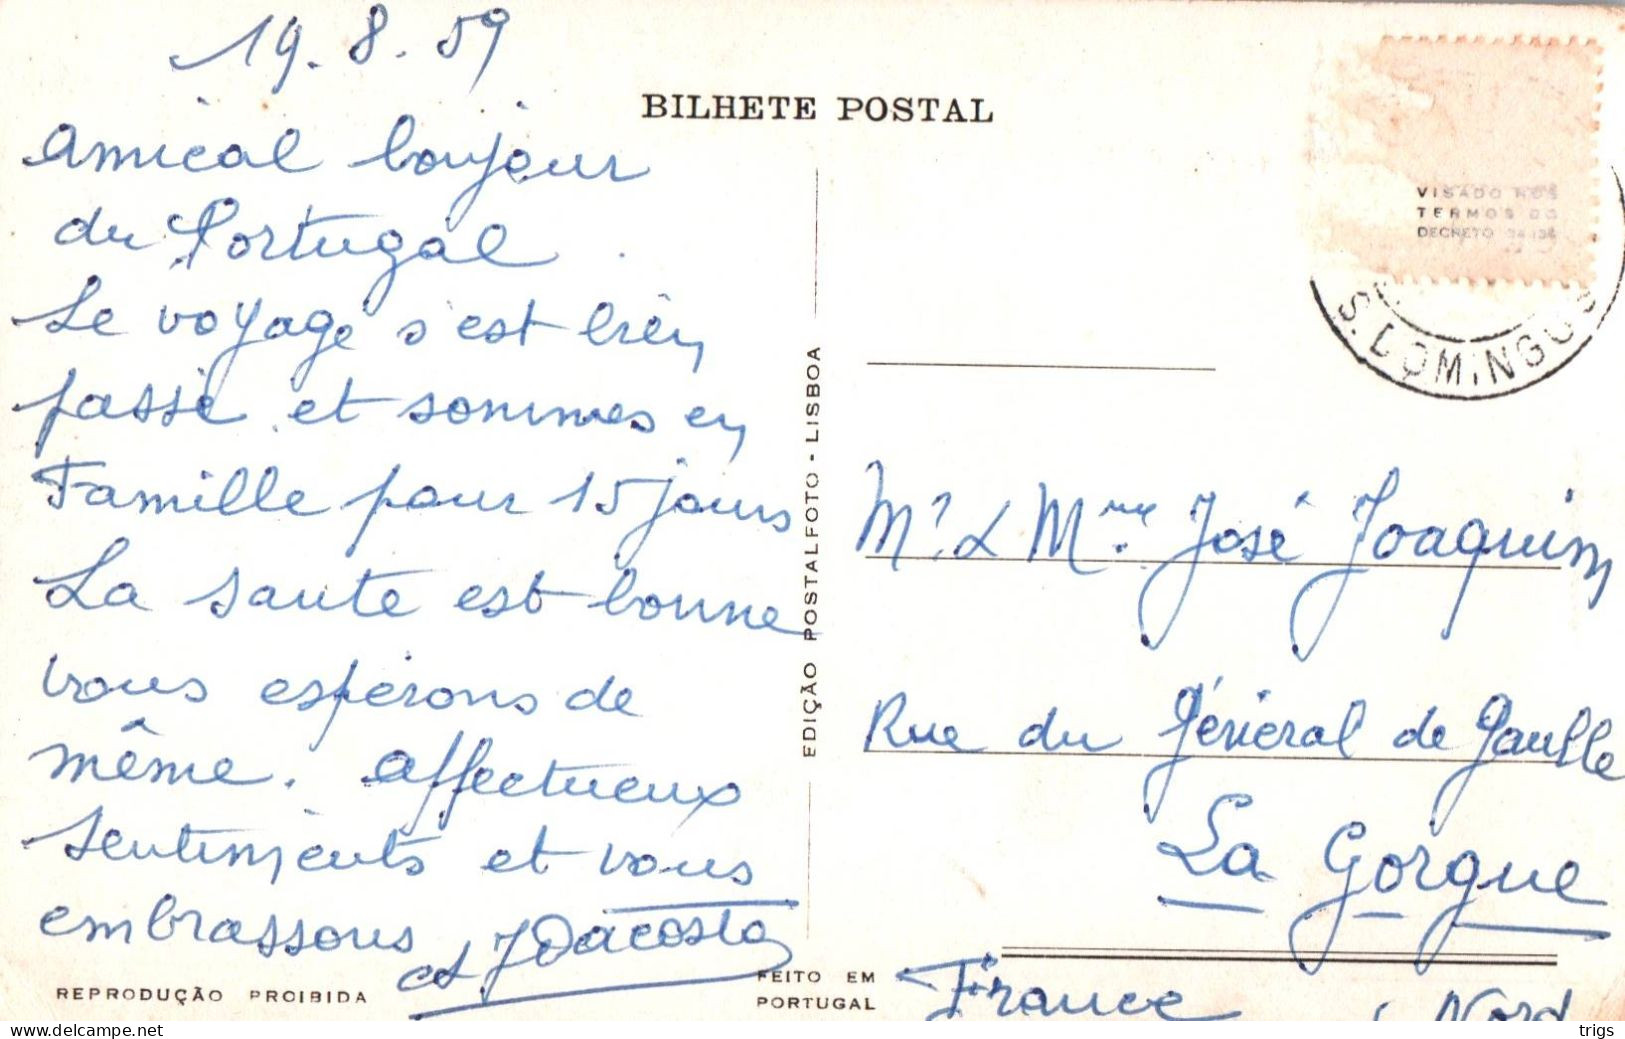 19.8.59
Amical bonjour
du Portugal.
Le voyage s'est bien
passé et sommes en
Famille pour 15 jours
La santé est bonne
vous espérons de
même. Affectueux
sentiments et vous
embrassons
et J Dacosta
REPRODUÇÃO PROIBIDA
BILHETE POSTAL
EDIÇÃO POSTALFOTO - LISBOA
FEITO EM
PORTUGAL
VISADO NOS
TERMOS DO
DECRETO
S. DOMINGOS
Mr & Mme José Joaquim
Rue du Général de Gaulle
La Gorgue
France Nord
trigs